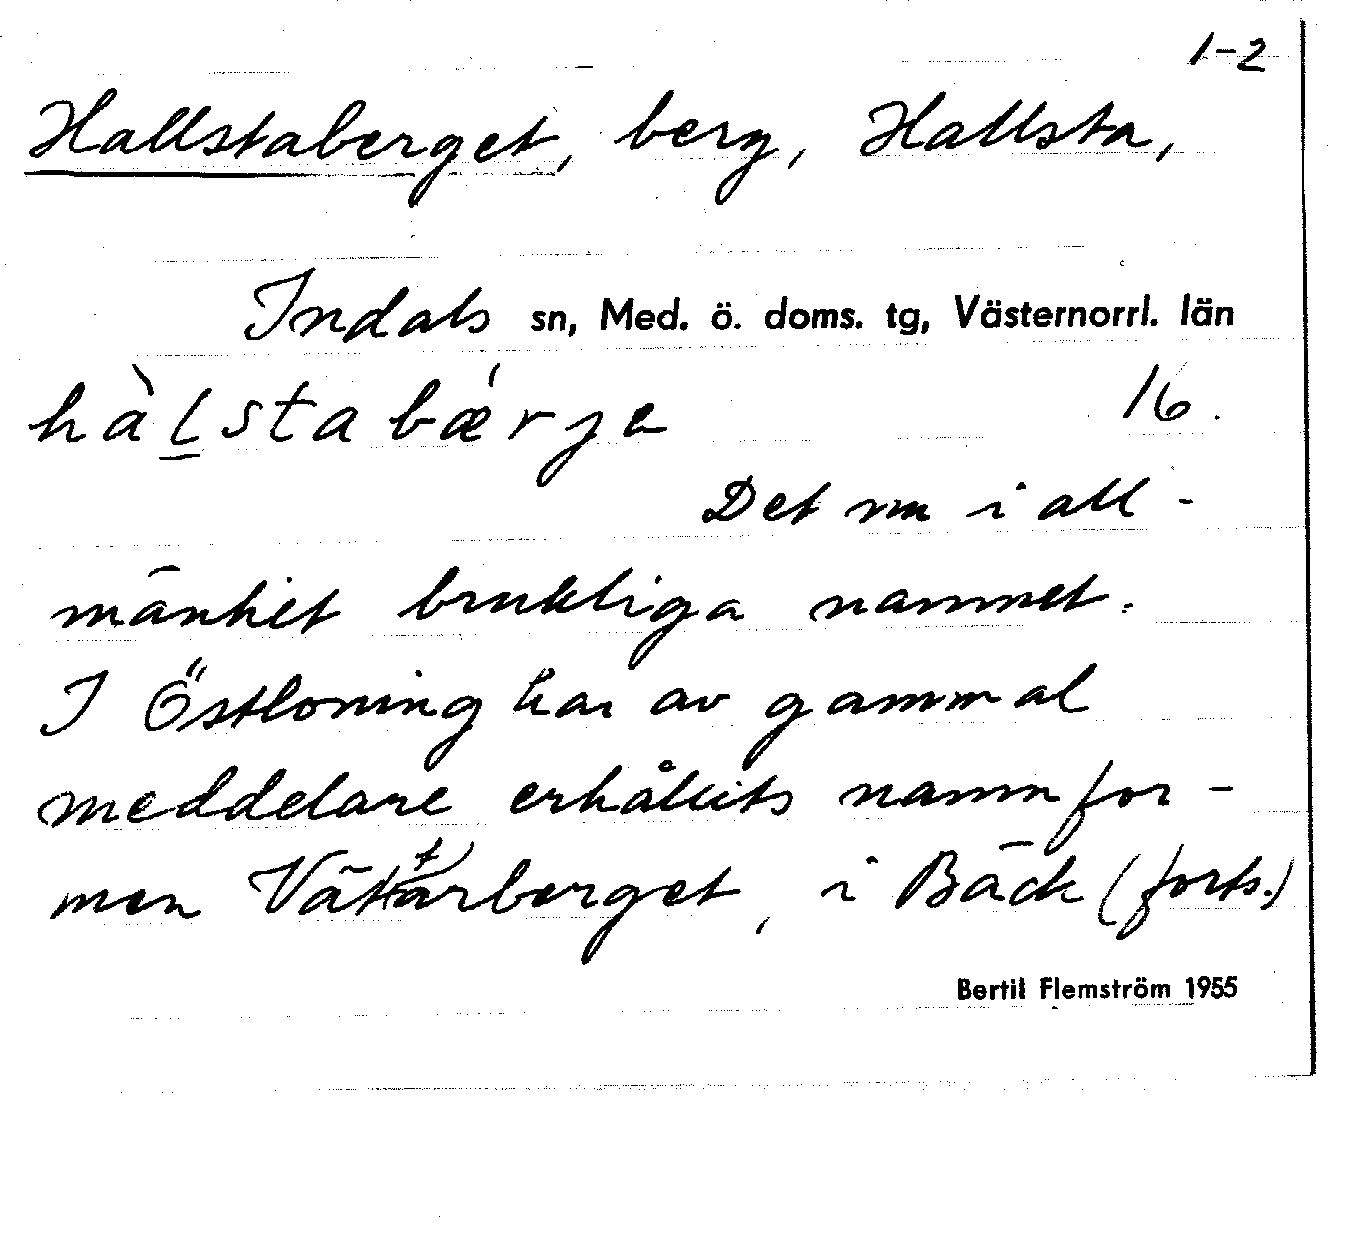 1-2
Hallstaberget, berg, Hallsta,
Indals sn, Med. ö. doms. tg, Västernorrl. län
hàlstabǽrje 16.
Det nu i all-
mänhet brukliga namnet.
I Östloning har av gammal
meddelare erhållits namnfor-
men Vättarberget, i Bäck (forts.)
Bertil Flemström 1955